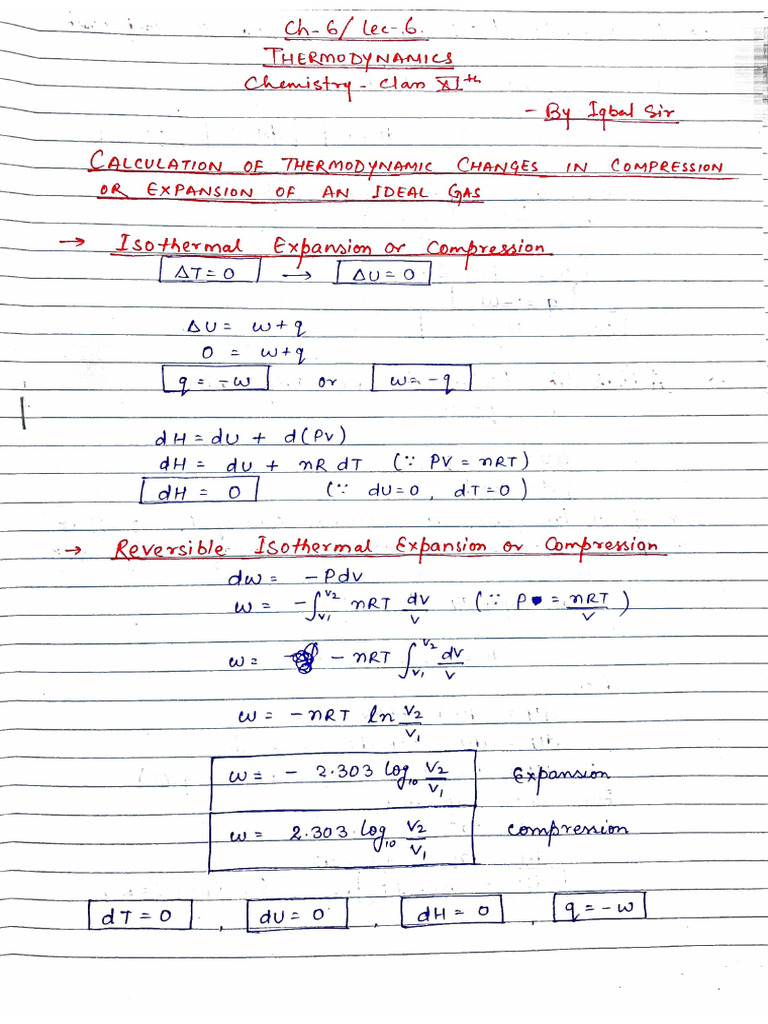 Ch-6/ Lec-6.
THERMODYNAMICS
Chemistry - Class XIth
- By Iqbal Sir
CALCULATION OF THERMODYNAMIC CHANGES IN COMPRESSION
OR EXPANSION OF AN IDEAL GAS
→ Isothermal Expansion or Compression
ΔT = 0 → ΔU = 0
ΔU = w + q
0 = w + q
q = -w or w = -q
dH = dU + d(PV)
dH = dU + nR dT (∵ PV = nRT)
dH = 0 (∵ dU = 0, dT = 0)
→ Reversible Isothermal Expansion or Compression
dw = -Pdv
w = -∫_{V1}^{V2} nRT dv/v (∵ P = nRT/V)
w = - nRT ∫_{V1}^{V2} dv/v
w = - nRT ln V2/V1
w = - 2.303 log10 V2/V1 Expansion
w = 2.303 log10 V2/V1 compression
dT = 0, dU = 0, dH = 0, q = -w